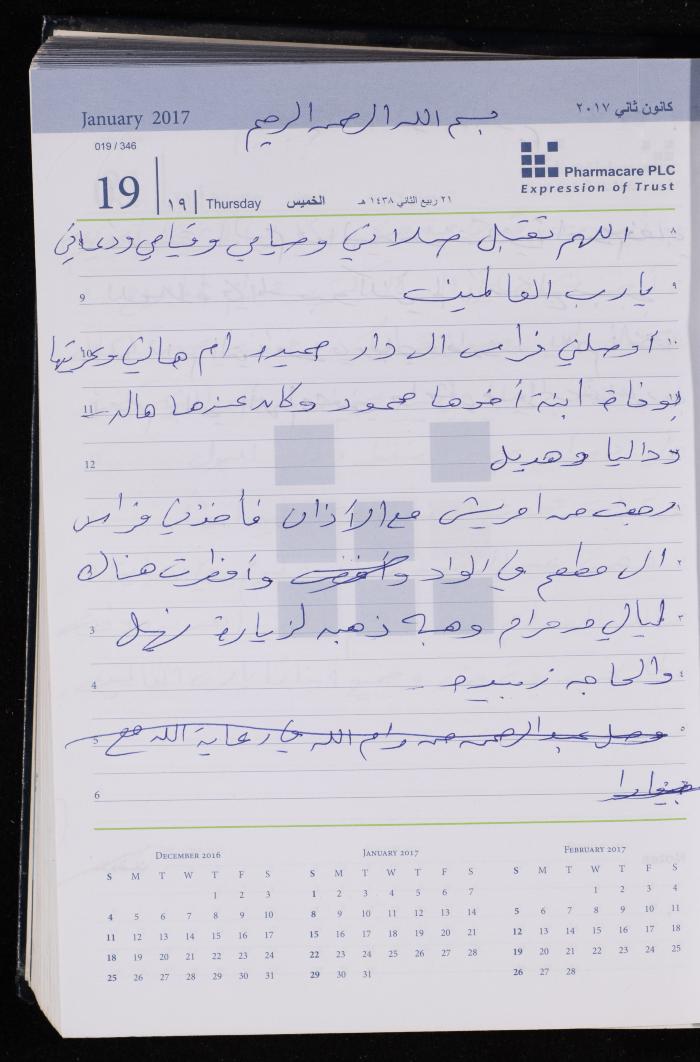 January 2017
بسم الله الرحمن الرحيم
كانون ثاني ٢٠١٧
019 / 346
19 | ١٩ | Thursday الخميس ٢١ ربيع الثاني ١٤٣٨ هـ
Pharmacare PLC
Expression of Trust
٨ اللهم تقبل صلاتي وصيامي وقيامي ودعائي
9 ٩ يارب العالمين
١٠ اوصلني فراس ال دار حميده ام هاني وعزيتها
11 بوفاة ابنة أخوها محمود وكان عندها هاله
12 وداليا وهديل
رجعت من مع الأذان فأخذني فراس
٢ ال مطعم في الواد وأفطرت هناك
3 ٣ ليالي مرام وهبه ذهبه لزيارة نهيل
4 ٤ والحاجه زبيده
5 ٥ وصل عبدالرحمن من رام الله في رعاية الله مع
6
DECEMBER 2016
S M T W T F S
1 2 3
4 5 6 7 8 9 10
11 12 13 14 15 16 17
18 19 20 21 22 23 24
25 26 27 28 29 30 31
JANUARY 2017
S M T W T F S
1 2 3 4 5 6 7
8 9 10 11 12 13 14
15 16 17 18 19 20 21
22 23 24 25 26 27 28
29 30 31
FEBRUARY 2017
S M T W T F S
1 2 3 4
5 6 7 8 9 10 11
12 13 14 15 16 17 18
19 20 21 22 23 24 25
26 27 28